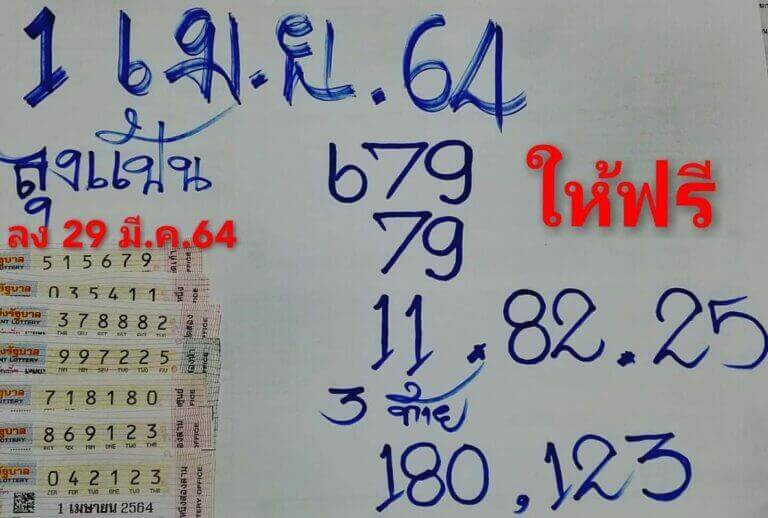 1 เม.ย. 64
ลุงแป้น
679
ให้ฟรี
79
ลง 29 มี.ค.64
11. 82. 25
3 ท้าย
180, 123
515679
035411
378882
997225
718180
869123
042123
1 เมษายน 2564